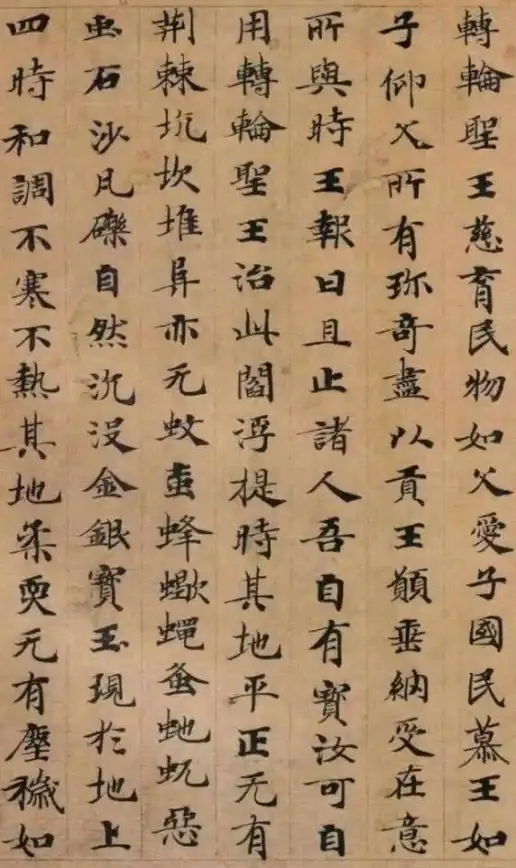 轉輪聖王慈育民物如父愛子國民慕王如
子仰父所有珎奇盡以貢王願垂納受在意
所與時王報曰且止諸人吾自有寳汝可自
用轉輪聖王治此閻浮提時其地平正无有
荆棘坑坎堆阜亦无蚊䖟蜂蝎蠅蚤虵蚖惡
虫石沙凡礫自然沉没金銀寳玉現於地上
四時和調不寒不熱其地柔耎无有塵穢如